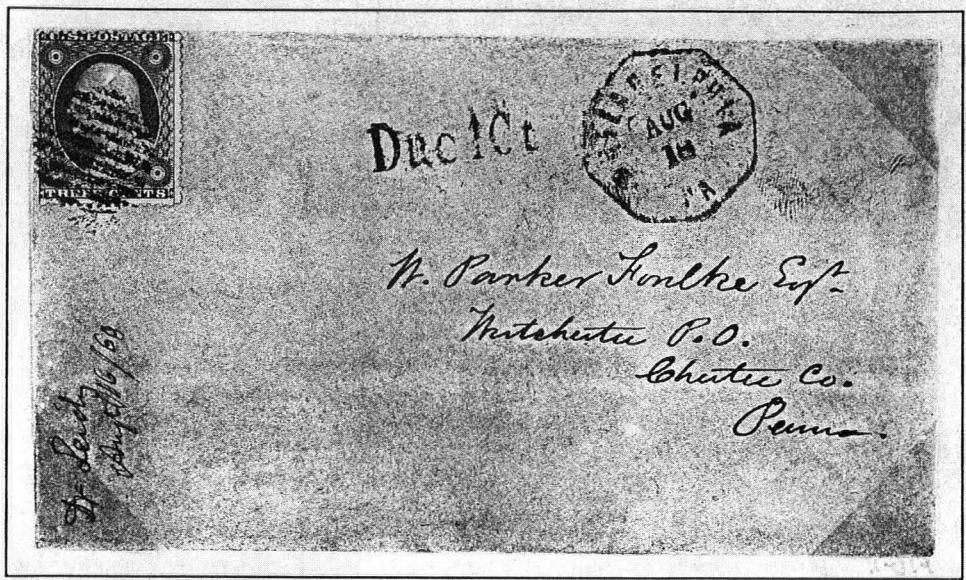 U.S. POSTAGE
THREE CENTS
Due 1 Ct
PHILADELPHIA
AUG
18
PA
W. Parker Foulke Esqr
Westchester P.O.
Chester Co.
Penna.
Dr Leidy
Aug 16/60